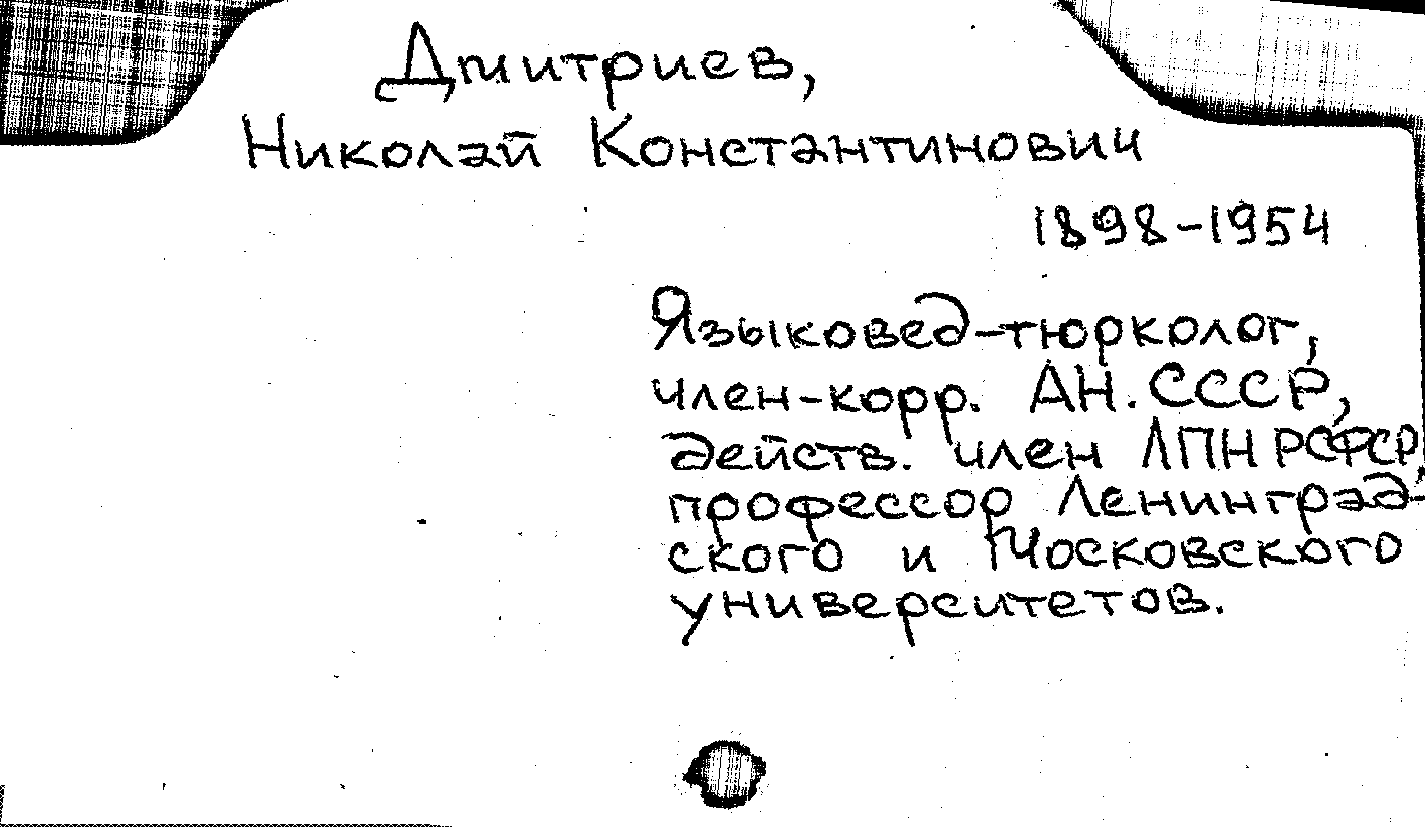 Дмитриев,
Николай Константинович
1898-1954
Языковед-тюрколог,
член-корр. АН. СССР,
действ. член АПН РСФСР,
профессор Ленинград-
ского и Московского
университетов.